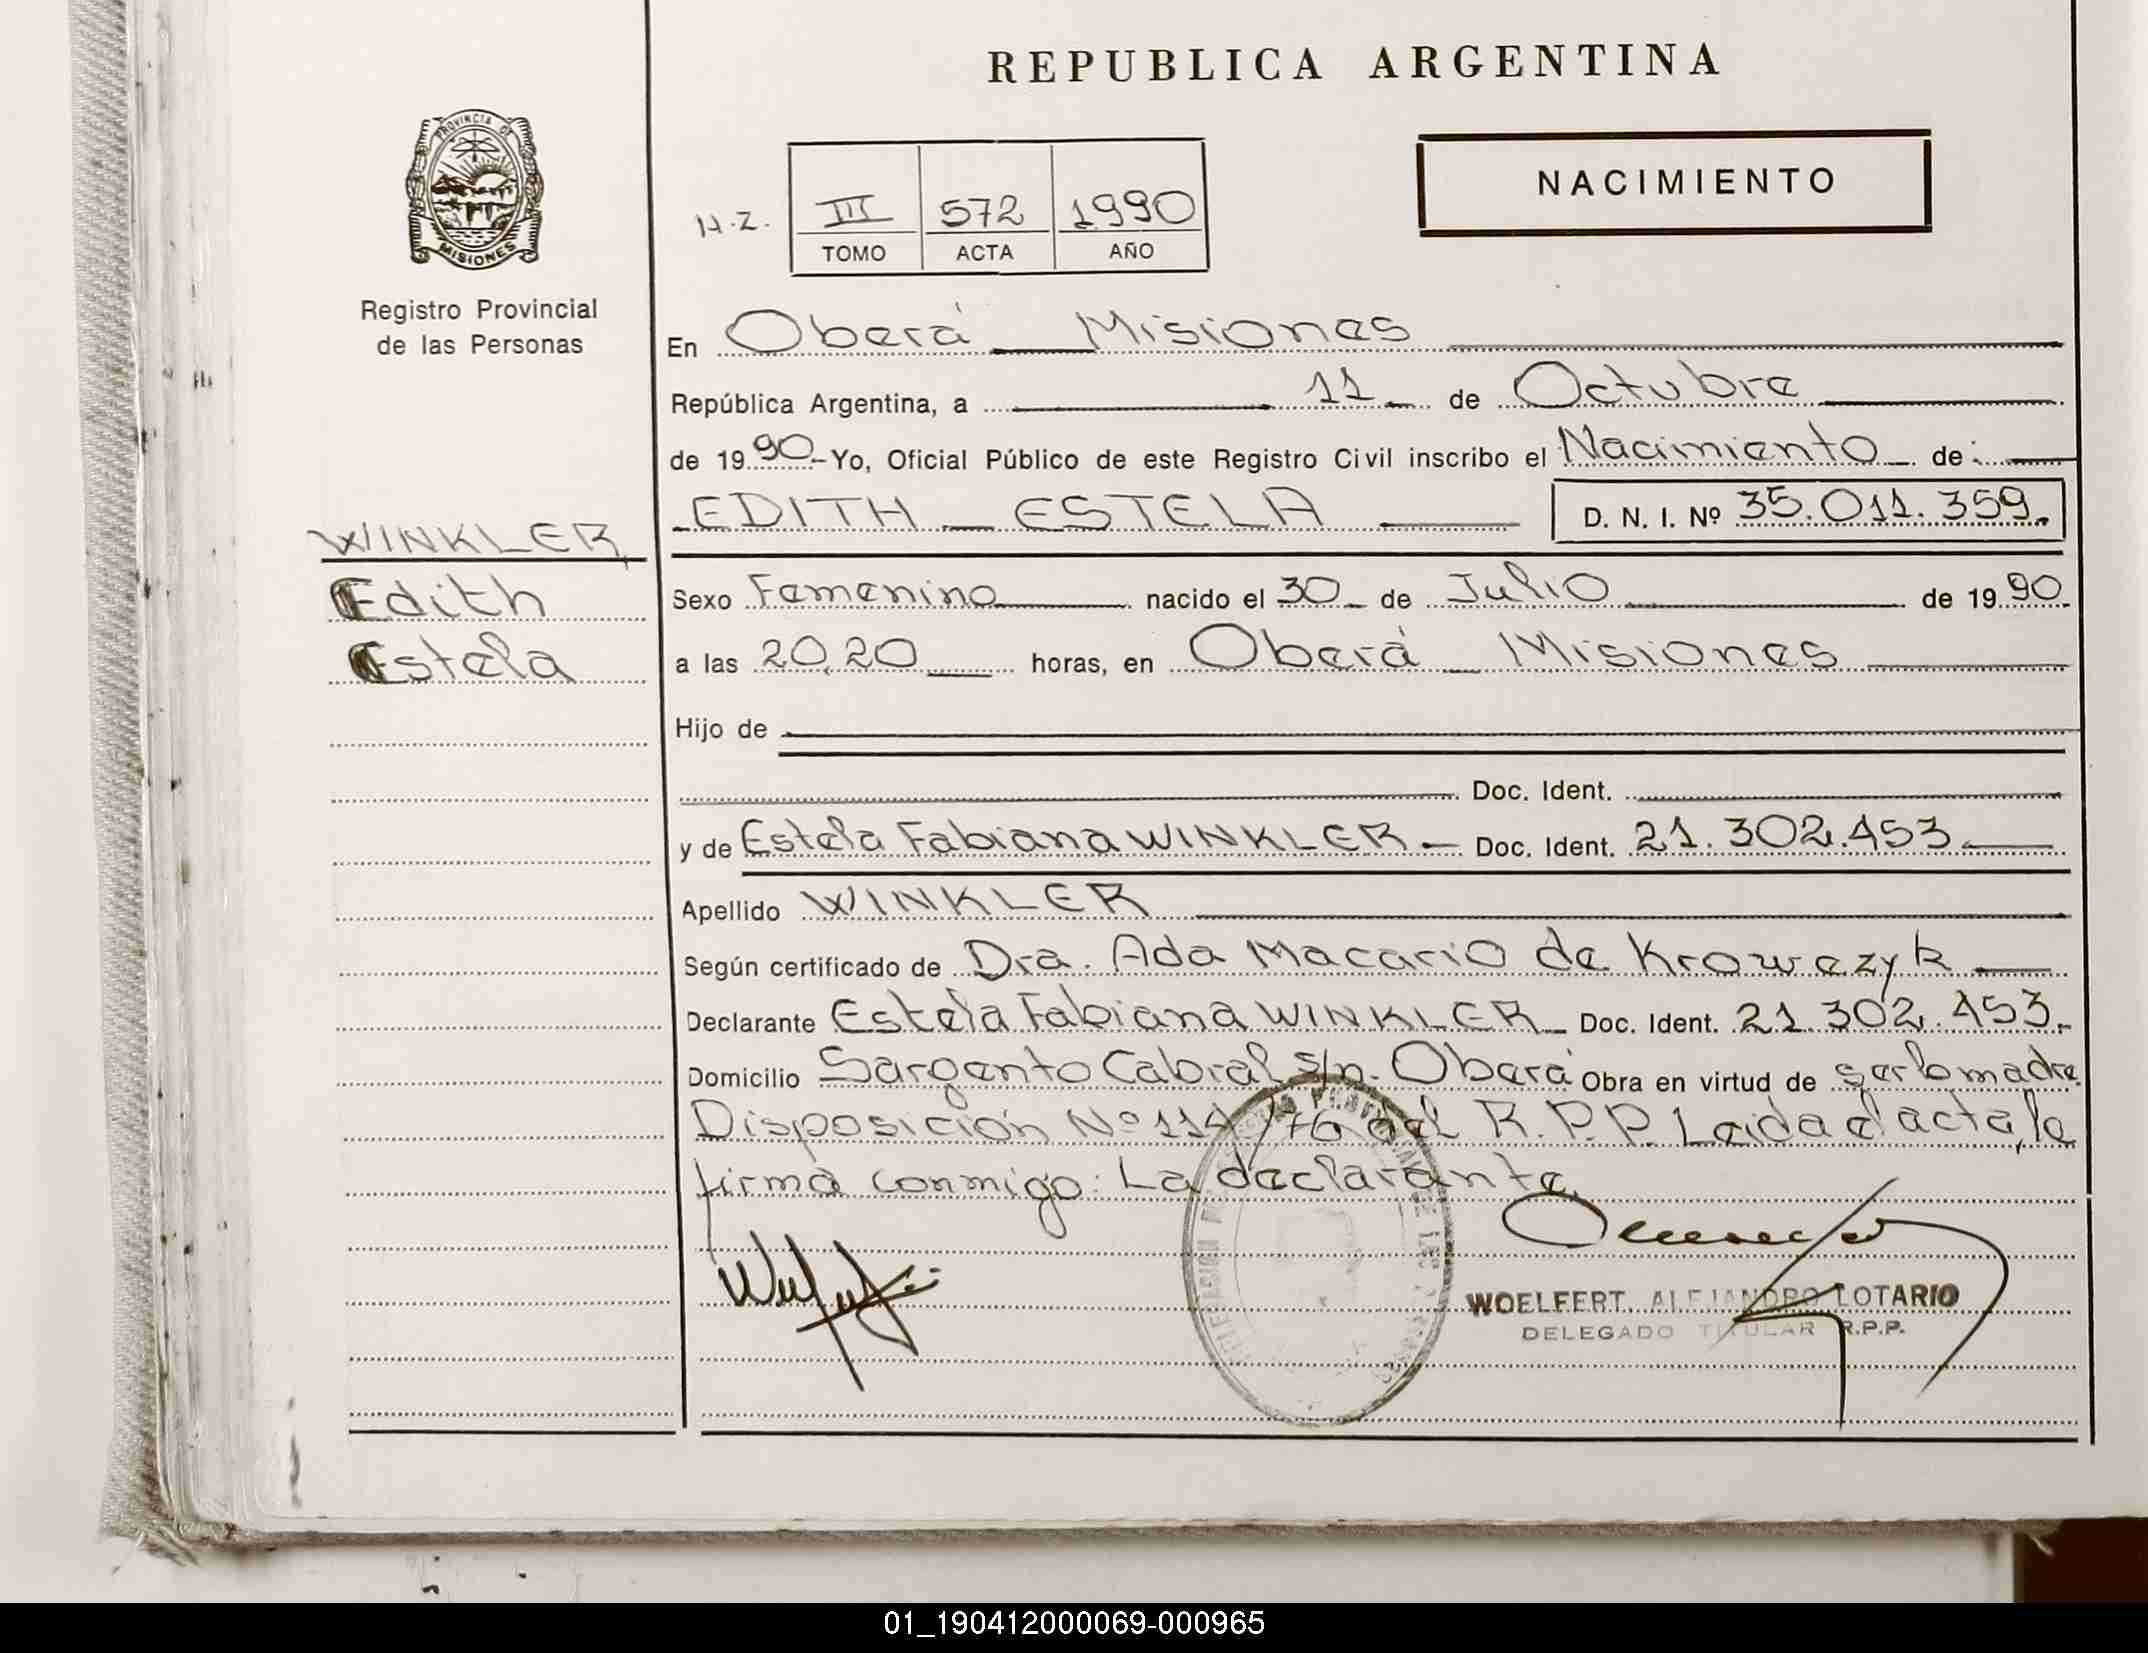 REPUBLICA ARGENTINA
PROVINCIA DE
MISIONES
Registro Provincial
de las Personas
H.Z.
III 572 1990
TOMO ACTA AÑO
NACIMIENTO
En Oberá Misiones
República Argentina, a 11 de Octubre
de 1990 - Yo, Oficial Público de este Registro Civil inscribo el Nacimiento de:
EDITH ESTELA D. N. I. Nº 35.011.359.
WINKLER,
Edith
Estela
Sexo Femenino nacido el 30 de Julio de 1990
a las 20,20 horas, en Oberá Misiones
Hijo de
Doc. Ident.
y de Estela Fabiana WINKLER Doc. Ident. 21.302.453
Apellido WINKLER
Según certificado de Dra. Ada Macario de Krowczyk
Declarante Estela Fabiana WINKLER Doc. Ident. 21.302.453.
Domicilio Sargento Cabral s/n. Oberá Obra en virtud de ser la madre.
Disposición Nº 114/76 del R.P.P. Leida el acta, la
firma conmigo: La declarante.
WOELFERT, ALEJANDRO LOTARIO
DELEGADO TITULAR R.P.P.
01_190412000069-000965